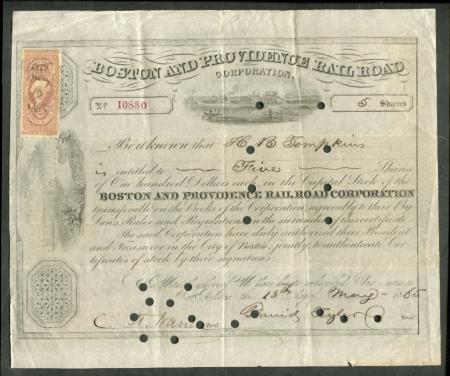 BOSTON AND PROVIDENCE RAIL ROAD
CORPORATION.
No 10880
5 Shares
Be it known that H B Tompkins
is entitled to Five Shares
of One hundred Dollars each in the Capital Stock of the
BOSTON AND PROVIDENCE RAIL ROAD CORPORATION
transferable on the Books of the Corporation agreeably to their By
Laws, Rules and Regulations on the surrender of this certificate.
The said Corporation have duly authorized their President
and Treasurer in the City of Boston, jointly to authenticate Cer-
tificates of stock by their signatures.
In Witness whereof We have
13th day of May 1865
Daniel Tyler